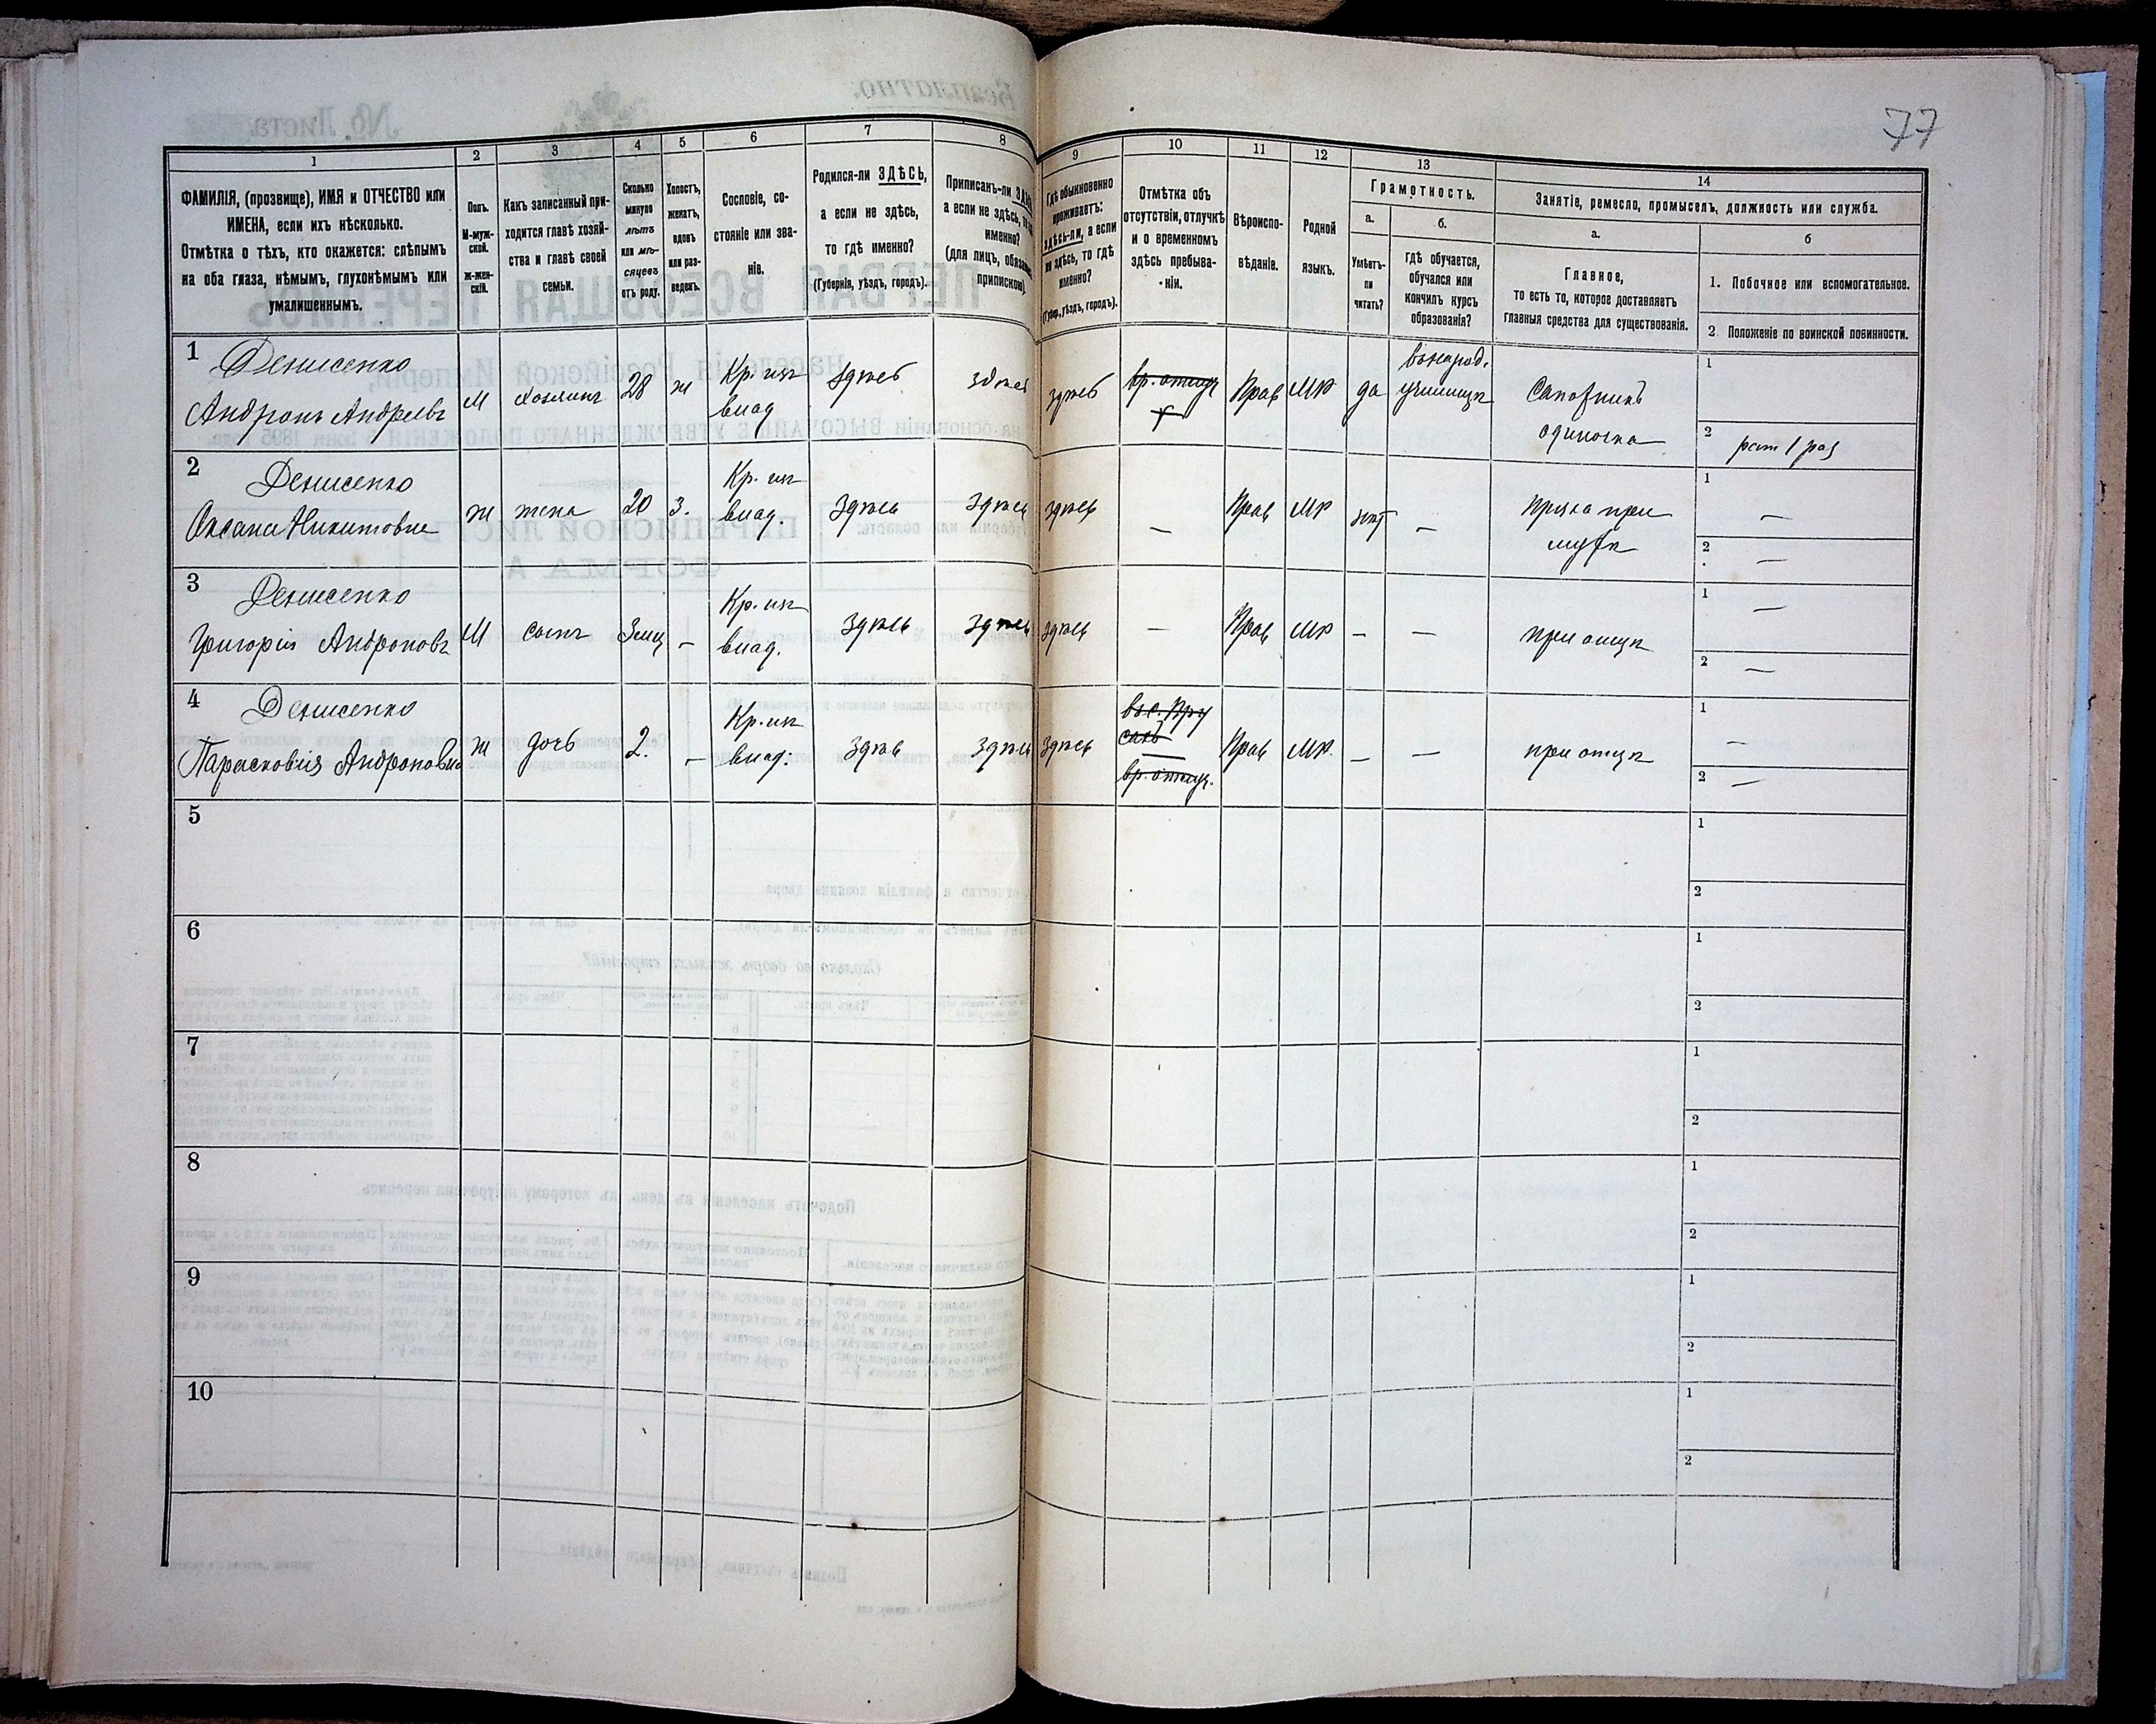 77
1
2
3
4
5
6
7
8
9
10
11
12
13
14
ФАМИЛІЯ, (прозвище), ИМЯ и ОТЧЕСТВО или
ИМЕНА, если ихъ нѣсколько.
Отмѣтка о тѣхъ, кто окажется: слѣпымъ
на оба глаза, нѣмымъ, глухонѣмымъ или
умалишеннымъ.
Полъ.
М-муж-
ской.
Ж-жен-
скій.
Какъ записанный при-
ходится главѣ хозяй-
ства и главѣ своей
семьи.
Сколько
минуло
лѣтъ
или мѣ-
сяцевъ
отъ роду.
Холостъ,
женатъ,
вдовъ
или раз-
веденъ.
Сословіе, со-
стояніе или зва-
ніе.
Родился-ли ЗДѢСЬ,
а если не здѣсь,
то гдѣ именно?
(Губернія, уѣздъ, городъ).
Приписанъ-ли
а если не здѣсь,
именно?
(для лицъ,
припискою).
Гдѣ обыкновенно
проживаетъ:
здѣсь-ли, а если
не здѣсь, то гдѣ
именно?
(Губер., уѣздъ, городъ).
Отмѣтка объ
отсутствіи, отлучкѣ
и о временномъ
здѣсь пребыва-
ніи.
Вѣроиспо-
вѣданіе.
Родной
языкъ.
Грамотность.
а.
б.
Умѣетъ-
ли
читать?
гдѣ обучается,
обучался или
кончилъ курсъ
образованія?
Занятіе, ремесло, промыселъ, должность или служба.
а.
б
Главное,
то есть то, которое доставляетъ
главныя средства для существованія.
1. Побочное или вспомогательное.
2. Положеніе по воинской повинности.
1 Денисенко
Андронъ Андреевъ
М
хозяинъ
28
ж
Кр. изъ
влад
здѣсь
здѣсь
здѣсь
Прав
МР
да
въ народ.
училищѣ
Сапожникъ
одиночка
1
2 рат 1 раз
2 Денисенко
Оксана Никитовна
ж
жена
20
З.
Кр. из
влад.
здѣсь
здѣсь
здѣсь
—
Прав
МР
нѣт
—
при
мужѣ
1 —
2 —
3 Денисенко
Григорій Андроновъ
М
сынъ
3 мѣц
-
Кр. из
влад.
здѣсь
здѣсь
здѣсь
—
Прав
МР
-
—
при отцѣ
1 —
2 —
4 Денисенко
Парасковія Андроновна
ж
дочь
2.
-
Кр. из
влад.
здѣсь
здѣсь
здѣсь
Прав
МР.
-
—
при отцѣ
1 —
2 —
5
1
2
6
1
2
7
1
2
8
1
2
9
1
2
10
1
2